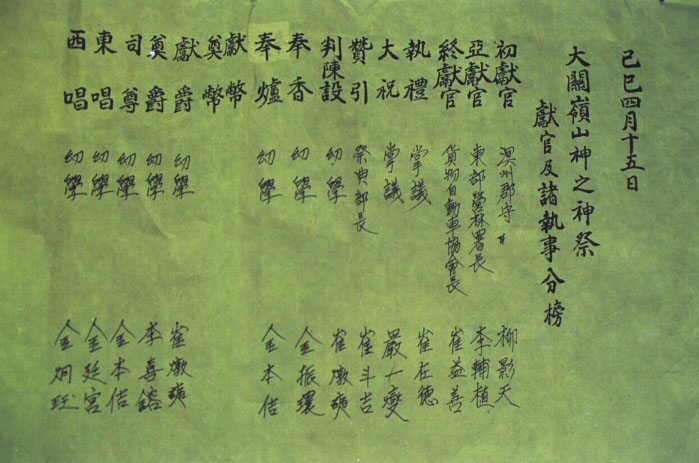 己巳四月十五日
大關嶺山神之神祭
獻官及諸執事分榜
初獻官 溟州郡守 〃 柳影天
亞獻官 東部營林署長 李輔植
終獻官 貨物自動車協會長 崔益善
執禮 掌議 崔在德
大祝 掌議 嚴十燮
贊引 祭典部長 崔斗吉
判陳設 幼學 崔燉
奉香 幼學 金振環
奉爐 幼學 金本佶
獻幣
奠幣
獻爵 幼學 崔燉
奠爵 幼學 李喜鎔
司尊 幼學 金本佶
東唱 幼學 金廷宮
西唱 幼學 金炯珏